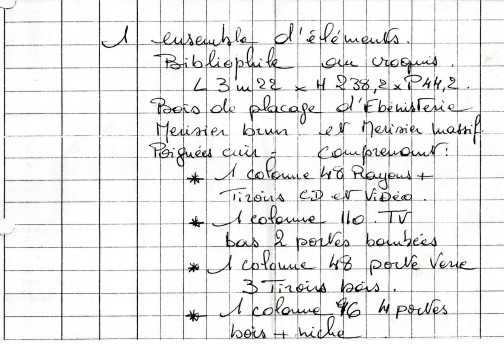 1 ensemble d'éléments.
Bibliophile au croquis.
L 3m22 x H 238,2 x P44,2.
Bois de placage d'Ebénisterie
Merisier brun et Merisier massif.
Poignées cuir - comprenant:
* 1 colonne 48 Rayons +
Tiroirs CD et Vidéo.
* 1 colonne 110. TV
bas 2 portes bombées
* 1 colonne 48 porte Verre
3 Tiroirs bois.
* 1 colonne 96 4 portes
bois + niche